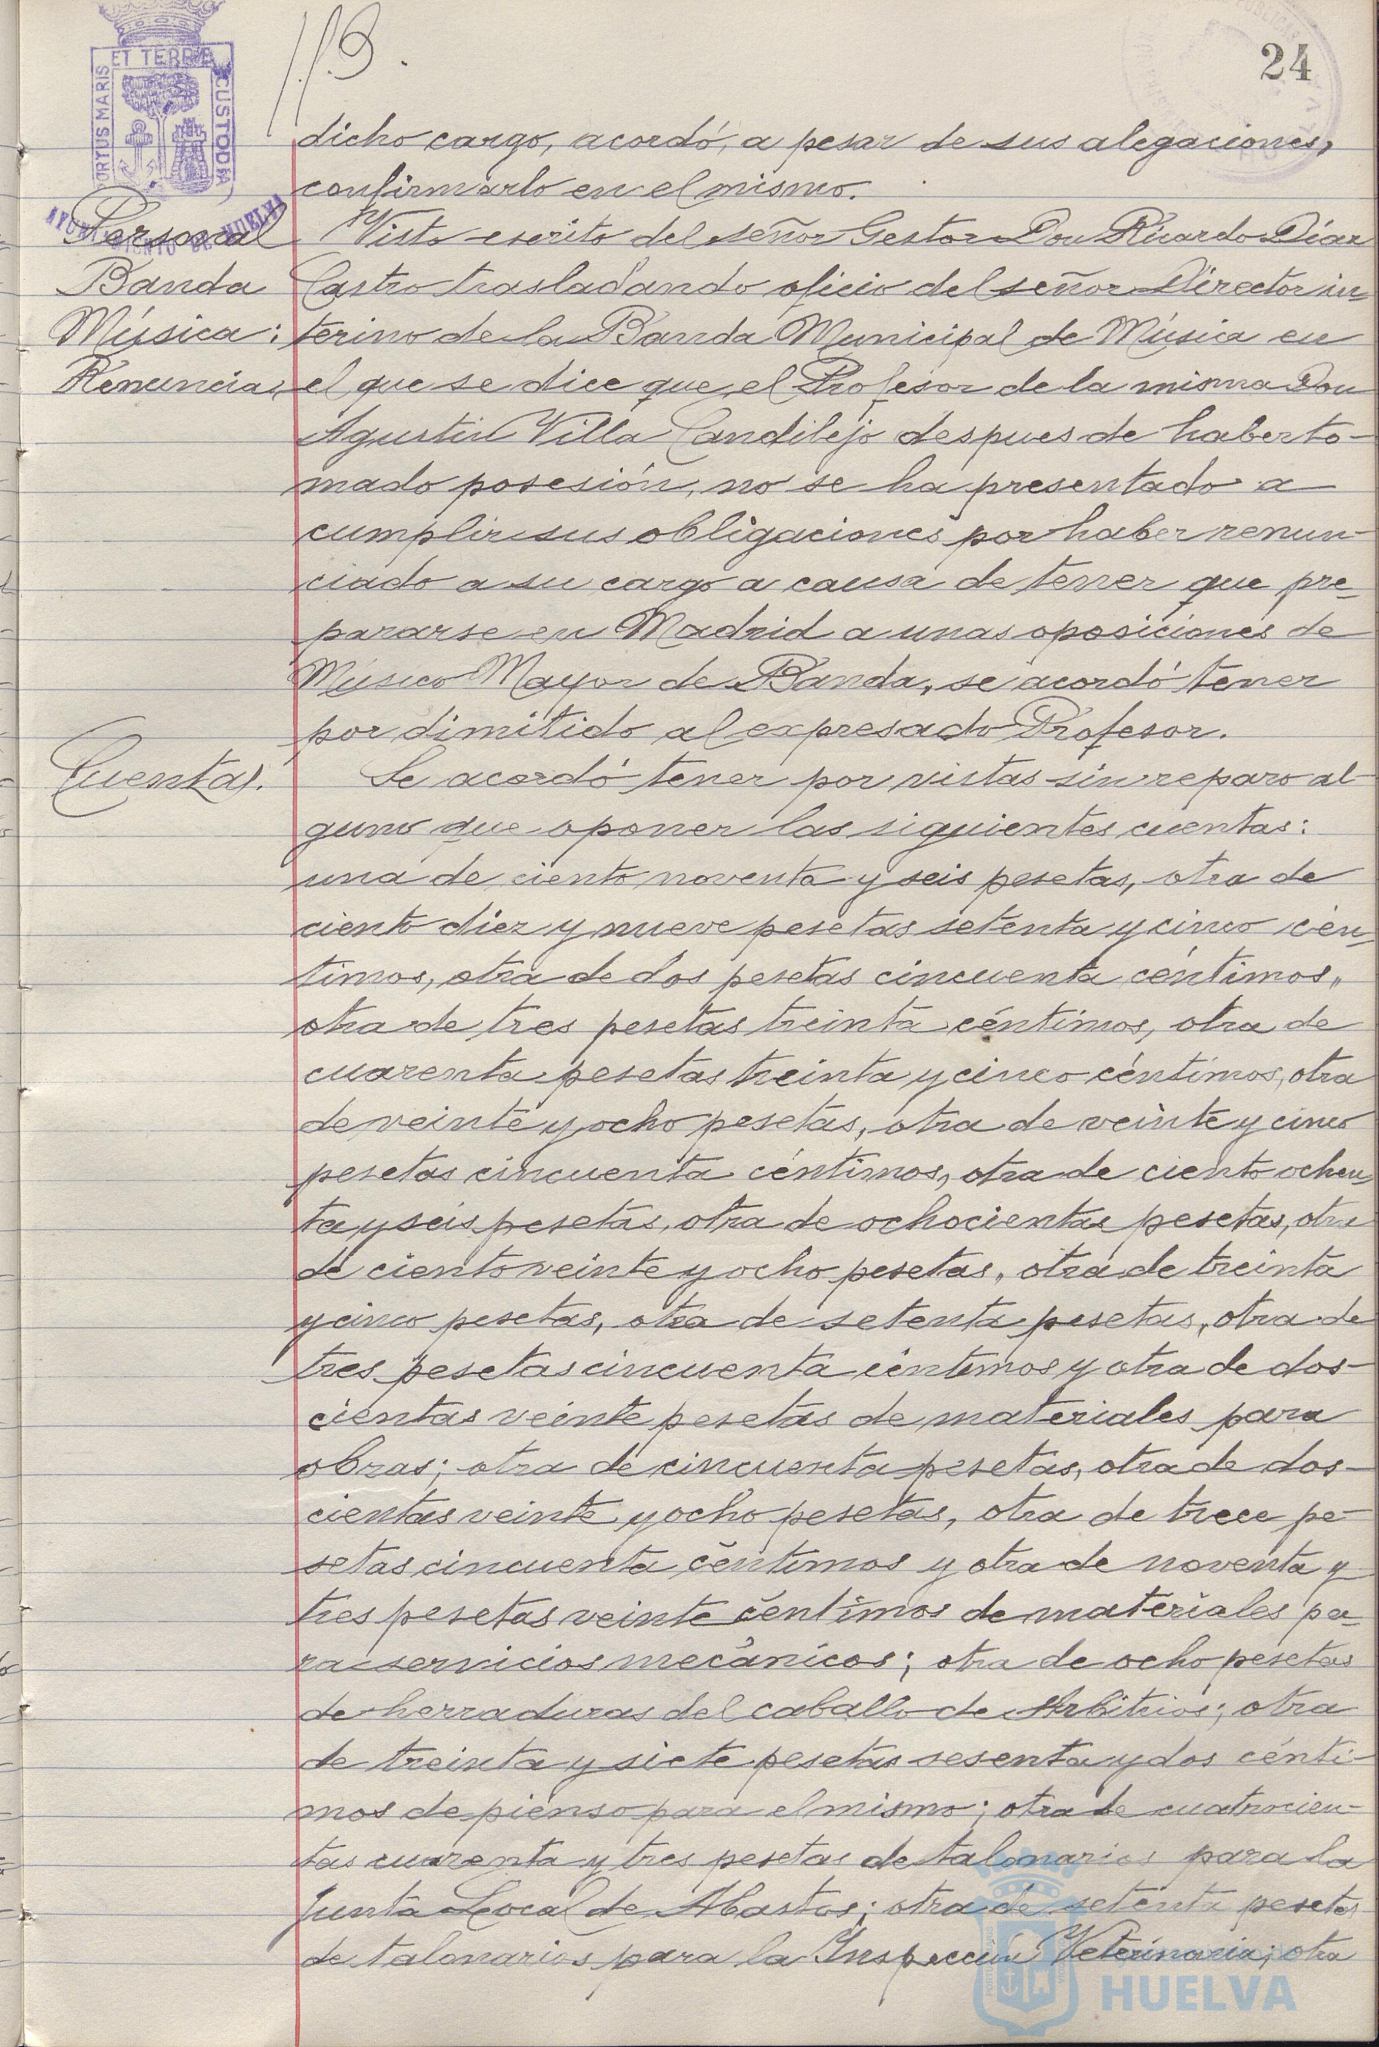 24
ET TERRÆ
PORTUS MARIS
CUSTODIA
AYUNTAMIENTO DE HUELVA
dicho cargo, acordó, a pesar de sus alegaciones,
confirmarlo en el mismo.
Personal
Banda
Música:
Renuncias,
Visto escrito del señor Gestor Don Ricardo Díaz
Castro trasladando oficio del señor Director in-
terino de la Banda Municipal de Música en
el que se dice que el Profesor de la misma Don
Agustin Villa Candilejo despues de haber to-
mado posesión, no se ha presentado a
cumplir sus obligaciones por haber renun-
ciado a su cargo a causa de tener que pre-
pararse en Madrid a unas oposiciones de
Músico Mayor de Banda, se acordó tener
por dimitido al expresado Profesor.
Cuentas.
Se acordó tener por vistas sin reparo al-
guno que oponer las siguientes cuentas:
una de ciento noventa y seis pesetas, otra de
ciento diez y nueve pesetas setenta y cinco cén-
timos, otra de dos pesetas cincuenta céntimos,
otra de tres pesetas treinta céntimos, otra de
cuarenta pesetas treinta y cinco céntimos, otra
de veinte y ocho pesetas, otra de veinte y cinco
pesetas cincuenta céntimos, otra de ciento ochen-
ta y seis pesetas, otra de ochocientas pesetas, otra
de ciento veinte y ocho pesetas, otra de treinta
y cinco pesetas, otra de setenta pesetas, otra de
tres pesetas cincuenta céntimos y otra de dos-
cientas veinte pesetas de materiales para
obras; otra de cincuenta pesetas, otra de dos-
cientas veinte y ocho pesetas, otra de trece pe-
setas cincuenta céntimos y otra de noventa y
tres pesetas veinte céntimos de materiales pa-
ra servicios mecánicos; otra de ocho pesetas
de herraduras del caballo de Arbitrios; otra
de treinta y siete pesetas sesenta y dos cénti-
mos de pienso para el mismo; otra de cuatrocien-
tas cuarenta y tres pesetas de talonarios para la
Junta Local de Abastos; otra de setenta pesetas
de talonarios para la Inspeccion Veterinaria; otra
HUELVA